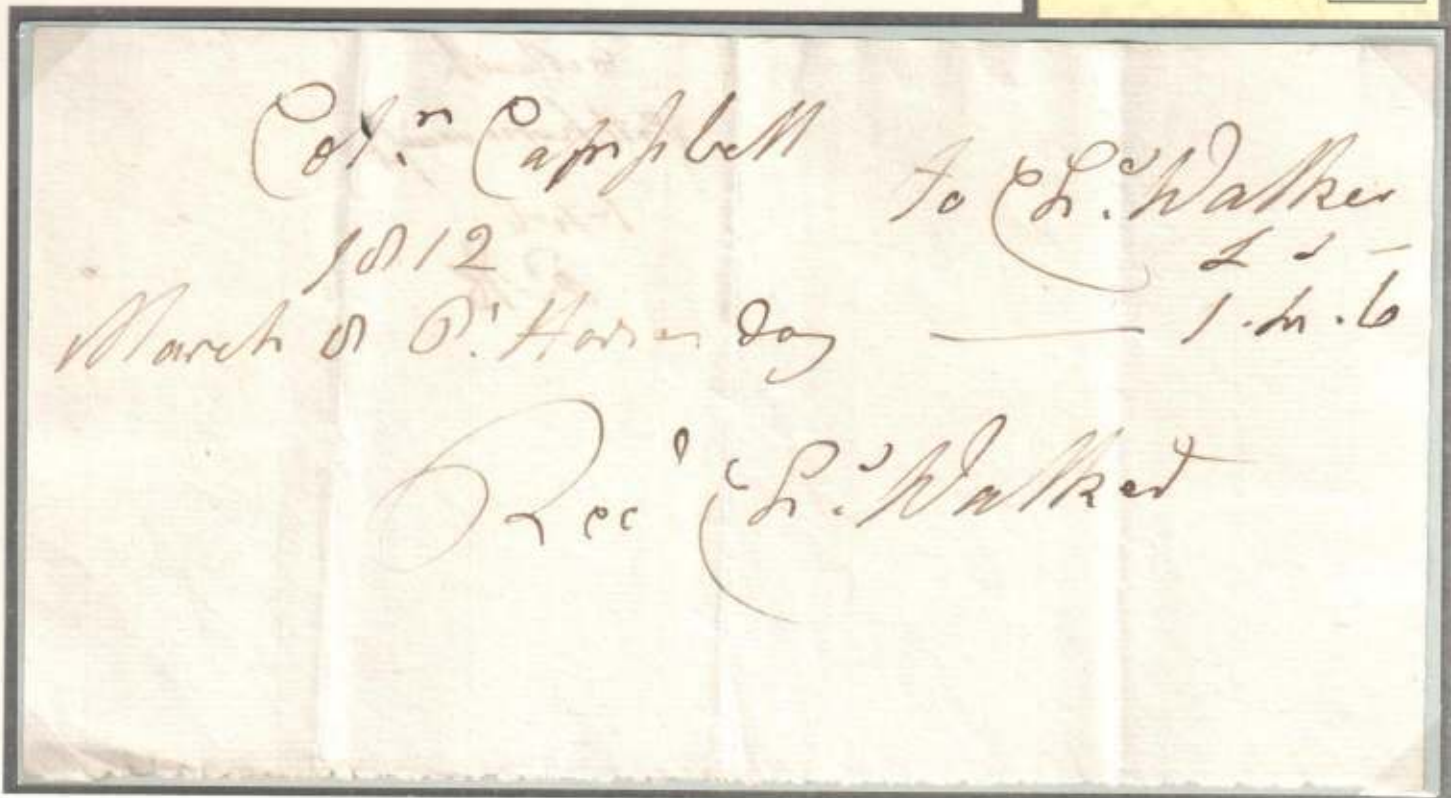 Col.ⁿ Campbell
To Ch.ˢ Walker
1812
£ s -
March 8 P.ʳ Horses day — 1.
Rec.ᵈ Ch.ˢ Walker